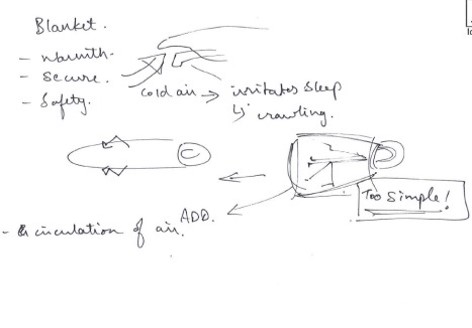 Blanket.
- warmth.
- secure.
- Safety.
cold air → irritates sleep
↳ crawling.
Too simple!
ADD.
- circulation of air.